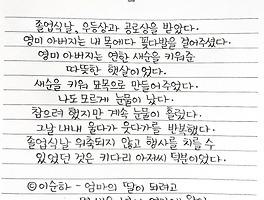 졸업식날, 우등상과 공로상을 받았다.
영미 아버지는 내 목에다 꽃다발을 걸어주셨다.
영미 아버지는 연한 새순을 키워준
따뜻한 햇살이었다.
새순을 키워 묘목으로 만들어주었다.
나도 모르게 눈물이 났다.
참으려 했지만 계속 눈물이 흘렀다.
그날 내내 울다가 웃다가를 반복했다.
졸업식날 위축되지 않고 행사를 치를 수
있었던 것은 키다리 아저씨 덕분이었다.
ⓒ이순하 - 엄마의 딸이 되려고